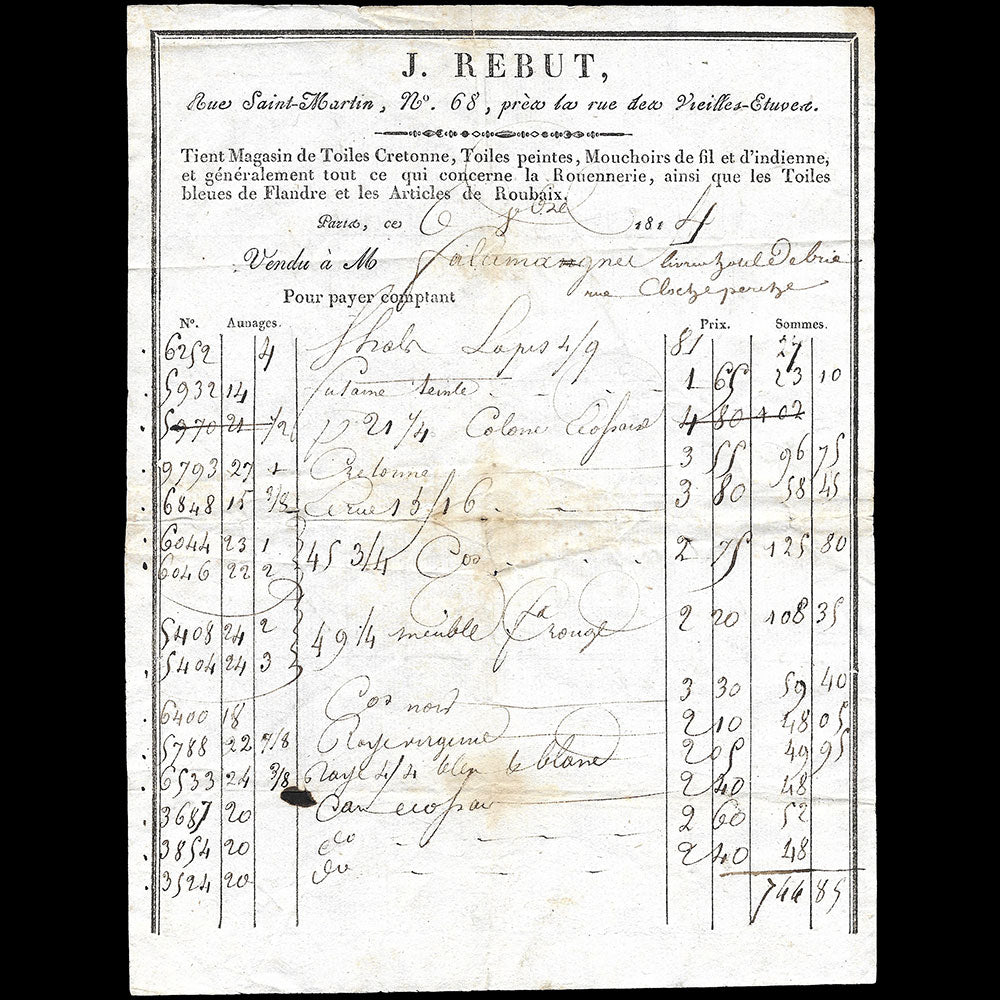 J. REBUT,
Rue Saint-Martin, N°. 68, près la rue des Vieilles-Etuves.
Tient Magasin de Toiles Cretonne, Toiles peintes, Mouchoirs de fil et d'indienne,
et généralement tout ce qui concerne la Rouennerie, ainsi que les Toiles
bleues de Flandre et les Articles de Roubaix.
Paris, ce 6 1814
Vendu à M
rue Clocheperche
Pour payer comptant
N°. Aunages. Prix. Sommes.
6252 4 4/9 81 27
5932 14 futaine teinte 1 65 23 10
5970 21 1/2 21 1/4 Colone Ecossaise 4 80 102
9793 27 1 Cretonne 3 55 96 75
6848 15 3/8 15/16 3 80 58 45
6044 23 1
45 3/4 Cos 2 75 125 80
6046 22 2
5408 24 2
49 1/4 meuble fd rouge 2 20 108 35
5404 24 3
6400 18 Cos noir 3 30 59 40
5788 22 7/8 Raye virginie 2 10 48 05
6533 24 3/8 Raye 4/4 bleu & blanc 2 05 49 95
3687 20 ecossais 2 40 48
3854 20 do 2 60 52
3524 20 do 2 40 48
744 85